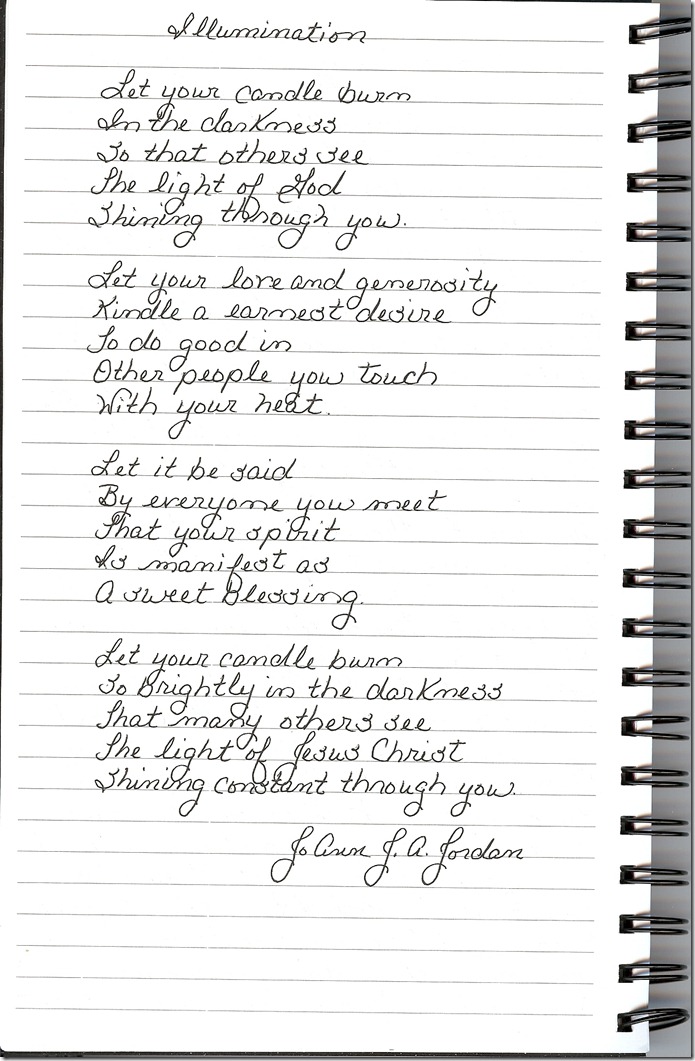 Illumination
Let your candle burn
In the darkness
So that others see
The light of God
Shining through you.
Let your love and generosity
Kindle a earnest desire
To do good in
Other people you touch
With your heat.
Let it be said
By everyone you meet
That your spirit
Is manifest as
A sweet Blessing.
Let your candle burn
So Brightly in the darkness
That many others see
The light of Jesus Christ
Shining constant through you.
JoAnn J. A. Jordan